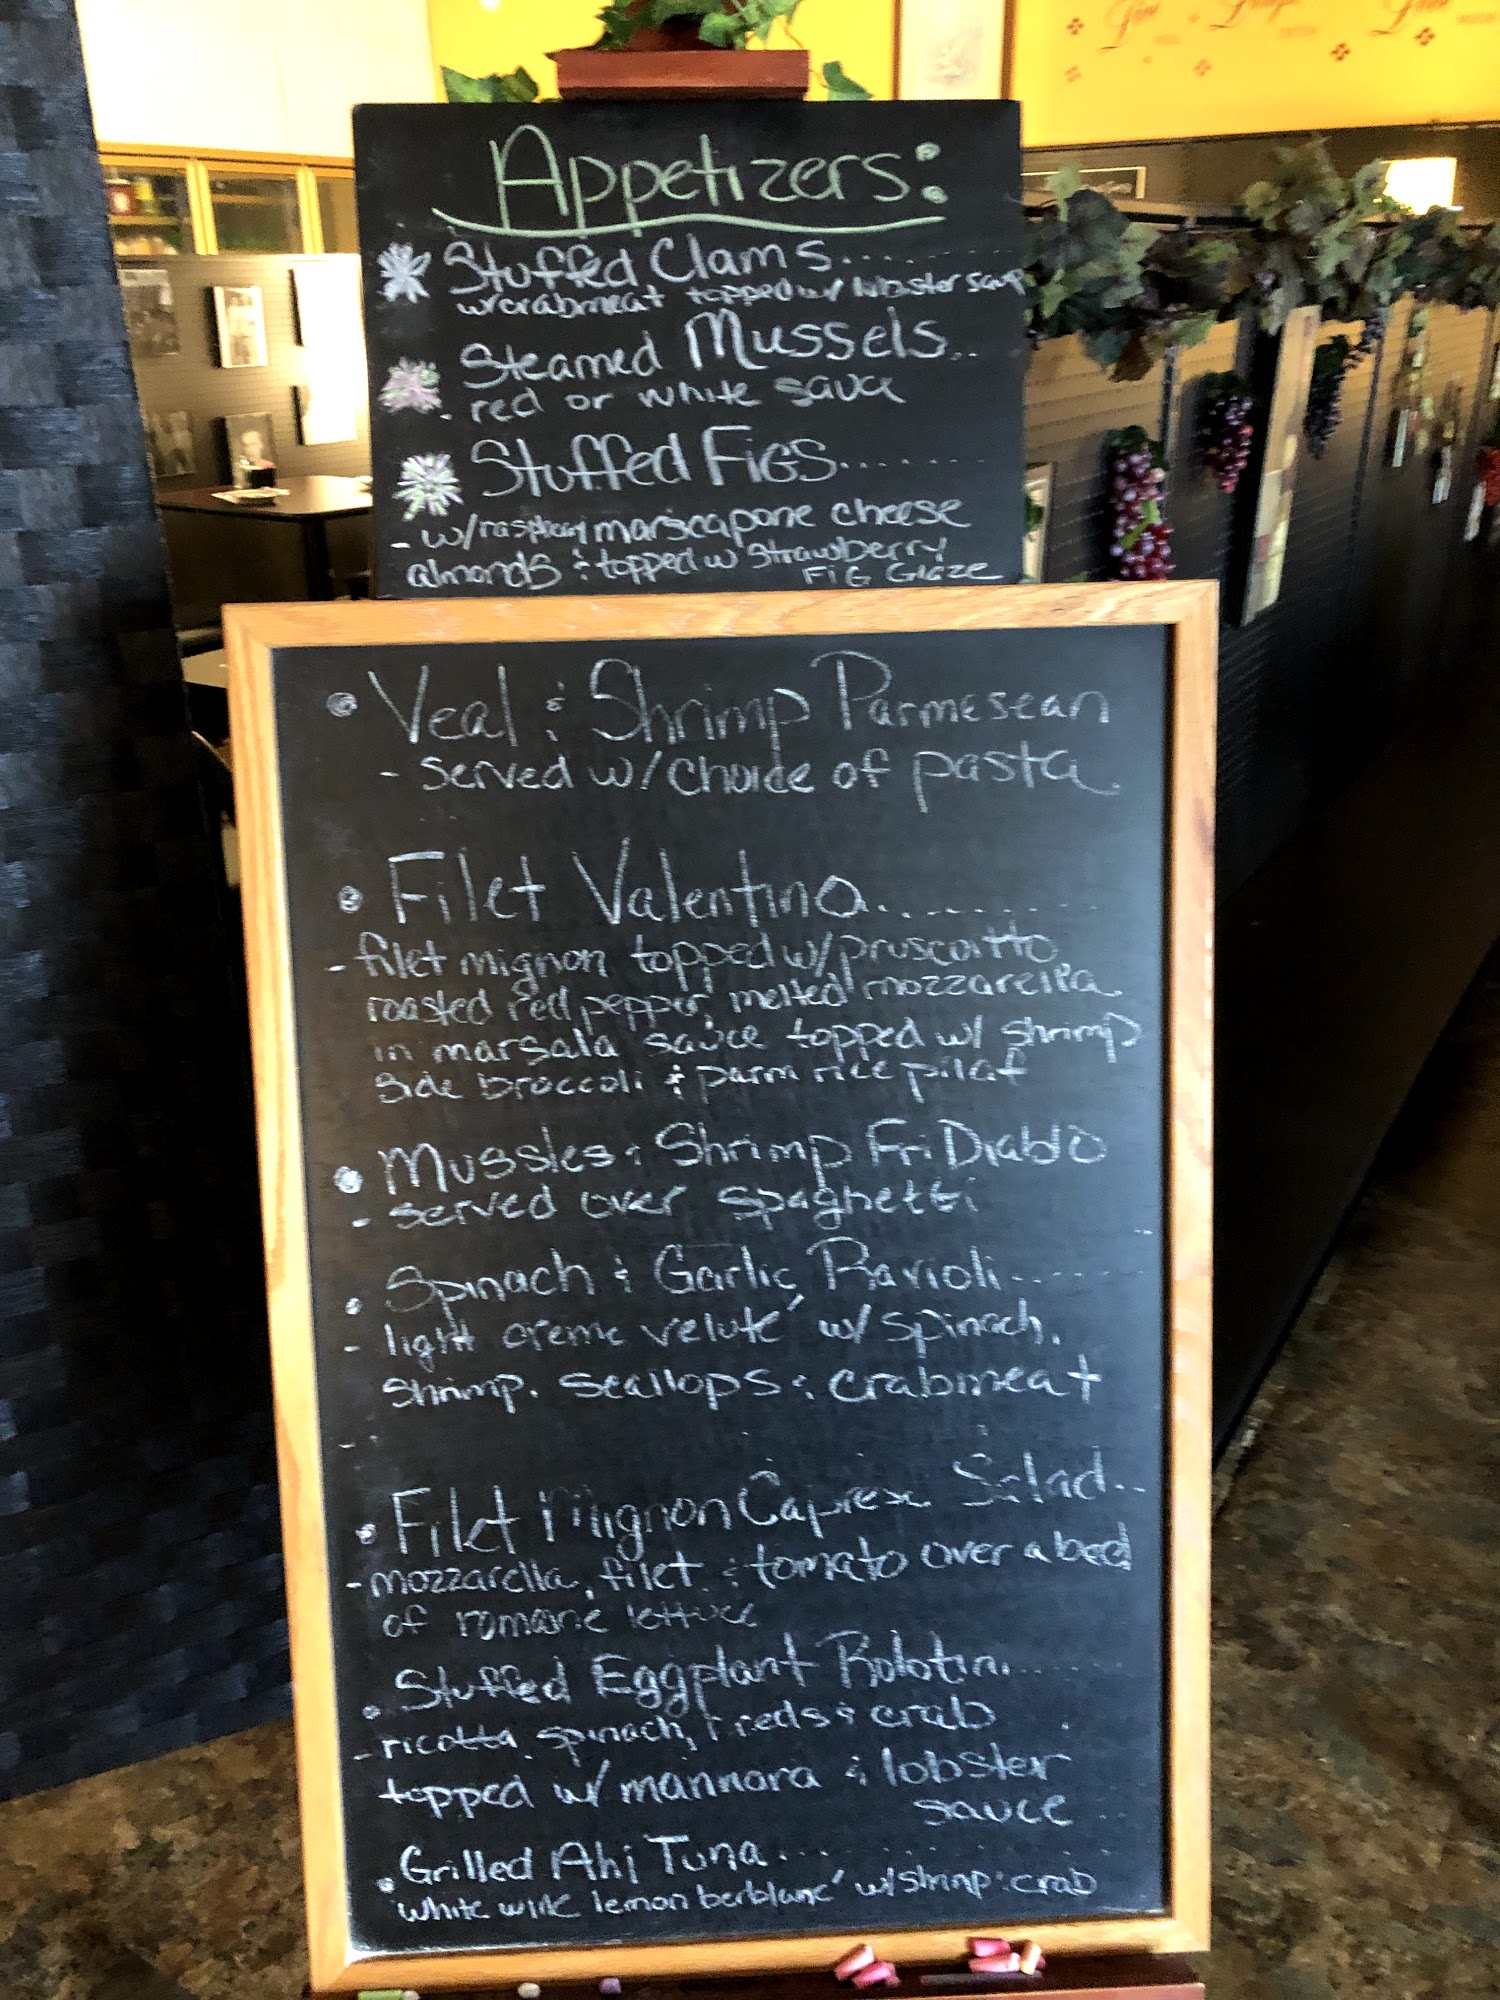 Appetizers:
Stuffed Clams........
w/crabmeat topped w/ lobster sauce
Steamed Mussels..
- red or white sauce
Stuffed FIGS.......
- w/raspberry marscapone cheese
almonds & topped w strawberry
FIG Glaze
• Veal & Shrimp Parmesean
- served w/choice of pasta
• Filet Valentino..........
- filet mignon topped w/pruscoitto
roasted red pepper, melted mozzarella
in marsala sauce topped w/ shrimp
side broccoli & parm rice pilaf
• Mussles & Shrimp Fri Diablo
- served over spaghetti
• Spinach & Garlic Ravioli......
- light creme veluté w/ spinach,
shrimp, scallops & crabmeat
• Filet Mignon Caprese Salad..
- mozzarella, filet & tomato over a bed
of romaine lettuce
• Stuffed Eggplant Rolotini......
- ricotta, spinach, & crab
topped w/ mannara & lobster
sauce
• Grilled Ahi Tuna........
white wine lemon berblanc' w/shrimp & crab